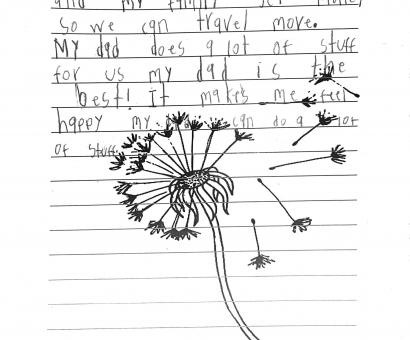 and my family get
so we can travel move.
My dad does a lot of stuff
for us my dad is the
best! it makes me feel
happy my can do a lot
of stuff.